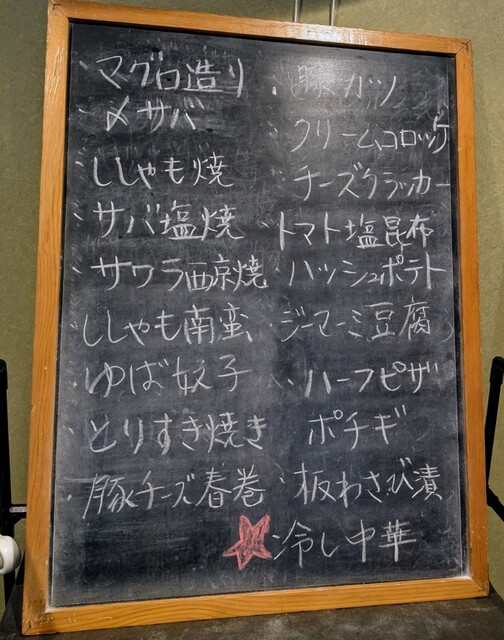 マグロ造り
〆サバ
ししゃも焼
サバ塩焼
サワラ西京焼
ししゃも南蛮
ゆば餃子
とりすき焼き
豚チーズ春巻
豚ガツ
クリームコロッケ
チーズクラッカー
トマト塩昆布
ハッシュポテト
ジーマーミ豆腐
ハーフピザ
ポチギ
板わさび漬
冷し中華